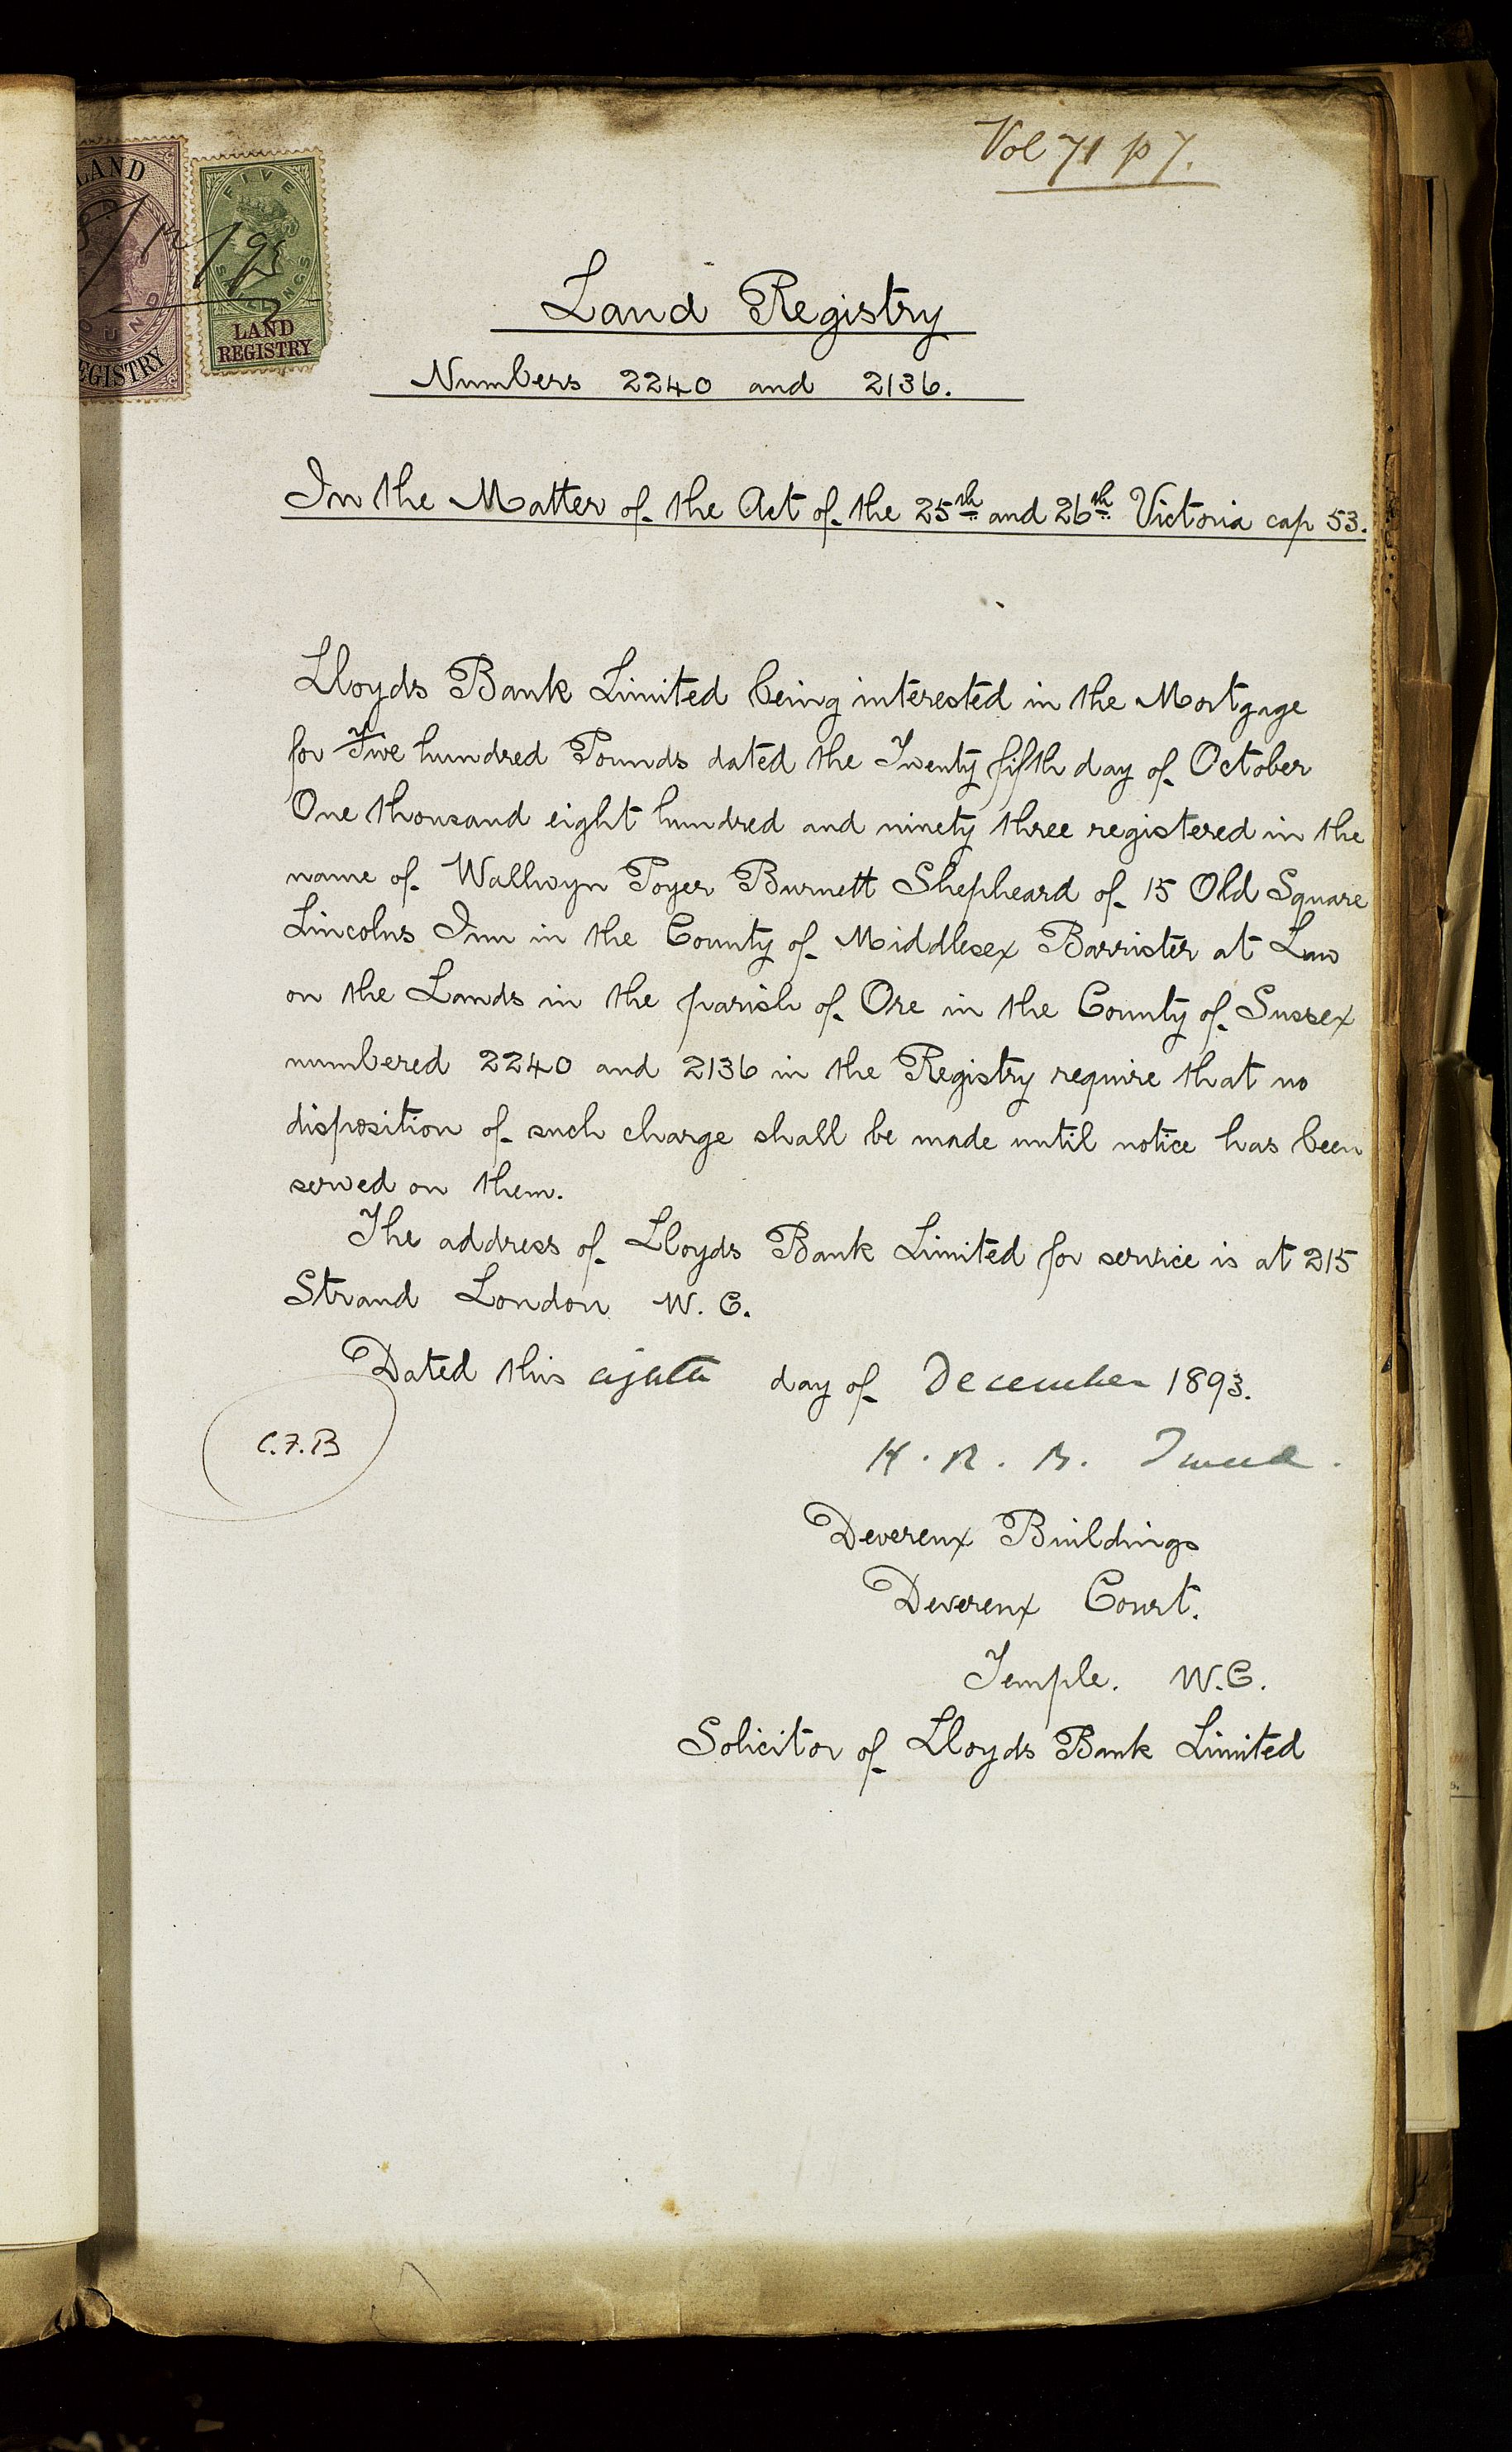 Vol 71 p 7.
LAND
REGISTRY
8/12/93
FIVE
SHILLINGS
LAND
REGISTRY
Land Registry
Numbers 2240 and 2136.
In the Matter of the Act of the 25th and 26th Victoria cap 53.
Lloyds Bank Limited being interested in the Mortgage
for Five hundred Pounds dated the Twenty fifth day of October
One thousand eight hundred and ninety three registered in the
name of Wallwyn Poyer Burnett Shepheard of 15 Old Square
Lincolns Inn in the County of Middlesex Barrister at Law
on the Lands in the parish of Ore in the County of Sussex
numbered 2240 and 2136 in the Registry require that no
disposition of such charge shall be made until notice has been
served on them.
The address of Lloyds Bank Limited for service is at 215
Strand London W. C.
Dated this eighth day of December 1893.
C.F.B
H. R. B. Tweed.
Devereux Buildings
Devereux Court.
Temple. W.C.
Solicitor of Lloyds Bank Limited